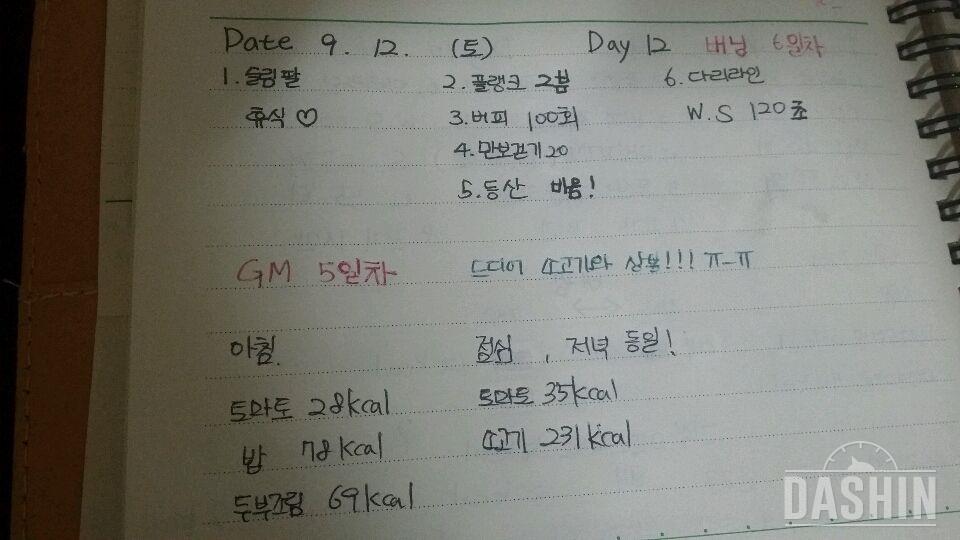 Date 9. 12. (토) Day 12 버닝 6일차
1. 슬림팔 2. 플랭크 2분 6. 다리라인
휴식♡ 3. 버피 100회 W.S 120초
4. 만보걷기 20
5. 등산 바음!
GM 5일차 드디어 소고기와 상봉!!! ㅠ-ㅠ
아침. 점심, 저녁 동일!
토마토 28kcal 토마토 35kcal
밥 78kcal 소고기 231kcal
두부조림 69kcal
DASHIN